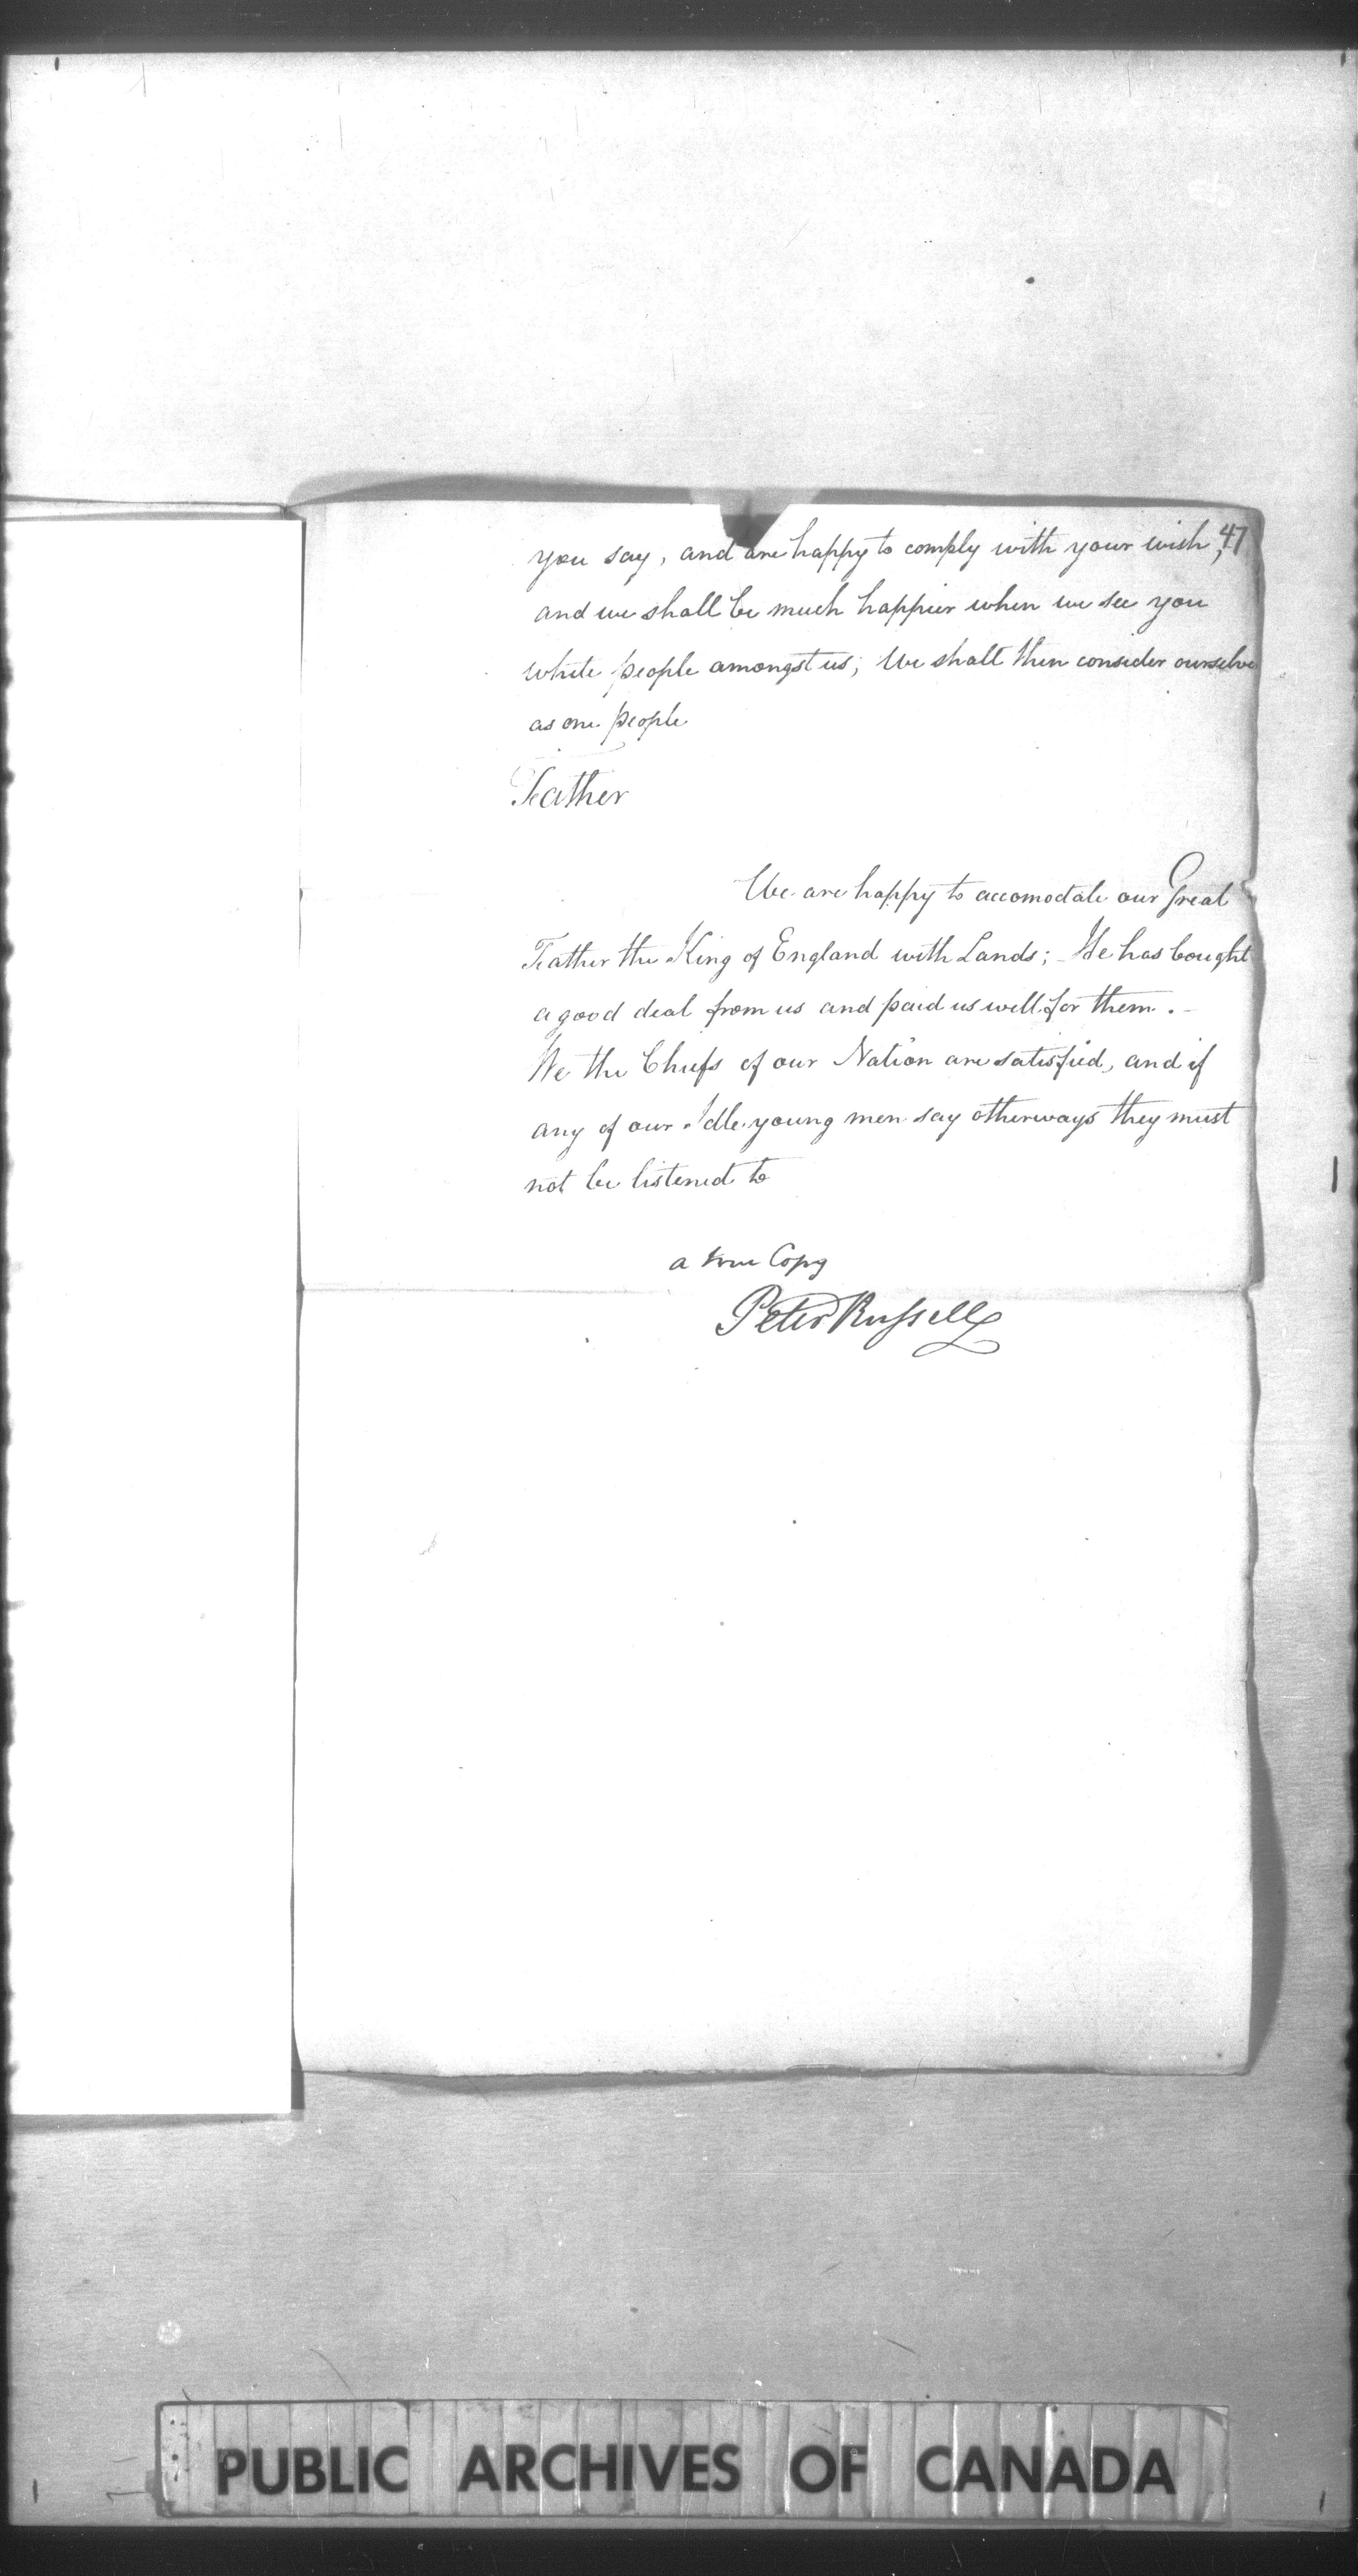 47
you say, and are happy to comply with your wish,
and we shall be much happier when we see you
white people amongst us; We shall then consider ourselve
as one people
Father
We are happy to accomodate our Great
Father the King of England with Lands; - He has bought
a good deal from us and paid us well for them. -
We the Chiefs of our Nation are satisfied, and if
any of our Idle young men say otherways they must
not be listened to
a true Copy
Peter Russell
PUBLIC ARCHIVES OF CANADA